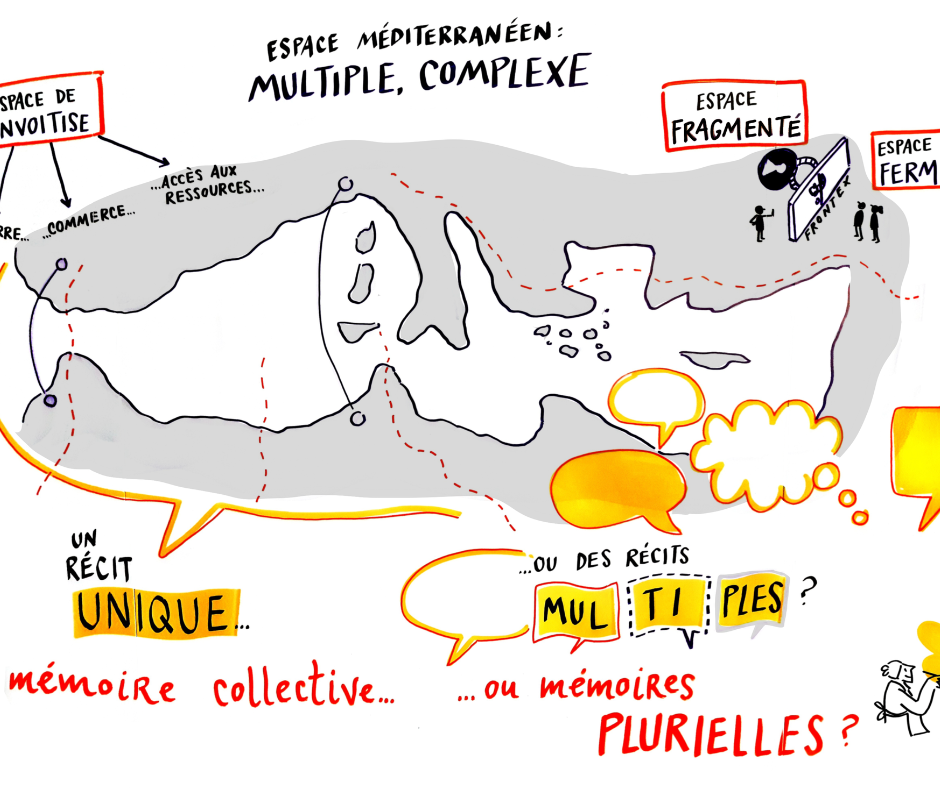 ESPACE MÉDITERRANÉEN:
MULTIPLE, COMPLEXE
SPACE DE
NVOITISE
...ACCÈS AUX
RESSOURCES...
...COMMERCE...
RRE...
ESPACE
FRAGMENTÉ
ESPACE
FERM
FRONTEX
UN
RÉCIT
UNIQUE...
...OU DES RÉCITS
MUL TI PLES ?
mémoire collective...
...ou mémoires
PLURIELLES ?